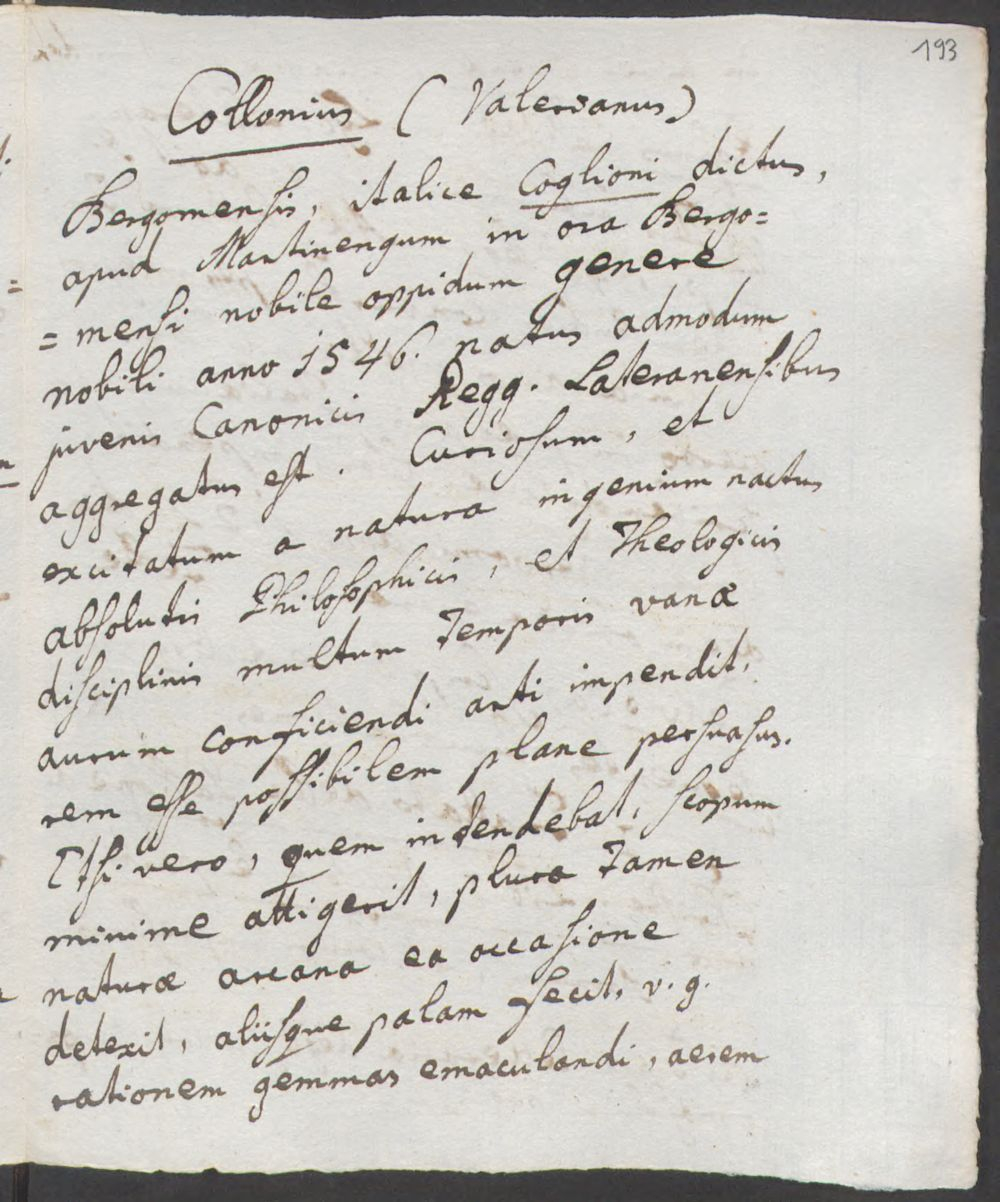 193
Collonius (Valerianus)
Bergomensis, italice Coglioni dictus,
apud Martinengum in ora Bergo=
=mensi nobile oppidum genere
nobili anno 1546. natus admodum
juvenis Canonicis Regg. Lateranensibus
aggregatus est. Curiosum, et
excitatum a natura ingenium nactus
absolutis Philosophicis, et Theologicis
disciplinis multum temporis vanæ
aurum conficiendi arti impendit,
rem esse possibilem plane persuasus.
Etsi vero, quem intendebat, scopum
minime attigerit, plura tamen
naturæ arcana ea occasione
detexit, aliisque palam fecit, v.g.
rationem gemmas emaculandi, aerem